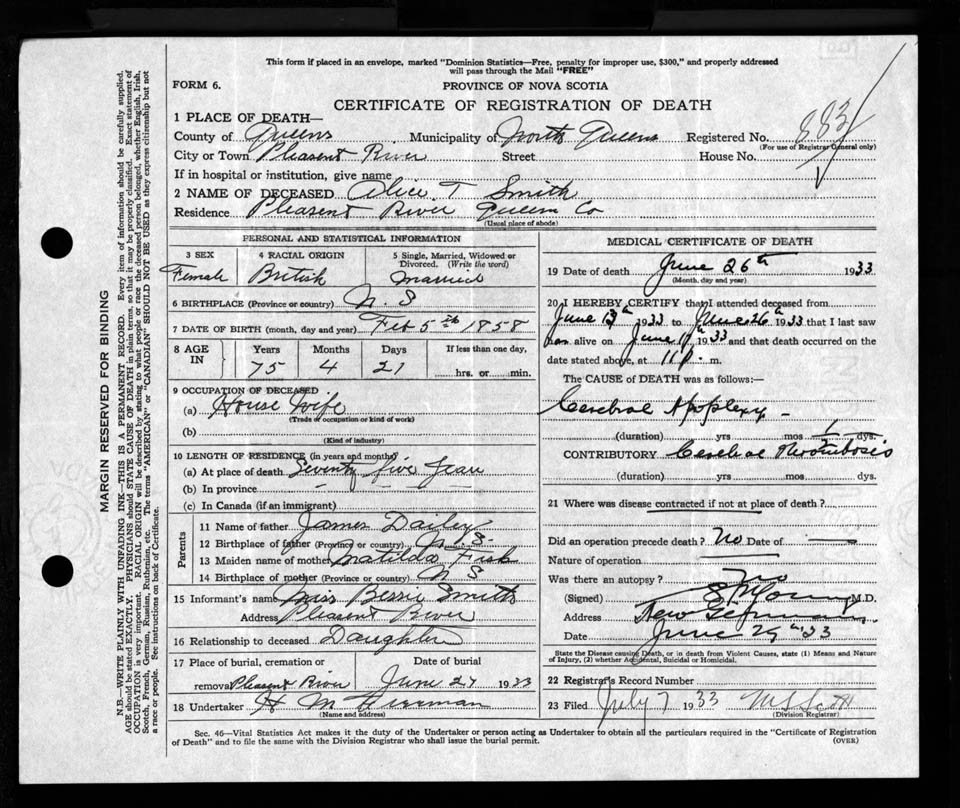 This form if placed in an envelope, marked "Dominion Statistics—Free, penalty for improper use, $300," and properly addressed
will pass through the Mail "FREE"
FORM 6.
PROVINCE OF NOVA SCOTIA
CERTIFICATE OF REGISTRATION OF DEATH
1 PLACE OF DEATH—
County of Queens Municipality of North Queens Registered No. 883
(For use of Registrar General only)
City or Town Pleasent River Street House No.
If in hospital or institution, give name
2 NAME OF DECEASED Alice T Smith
Residence Pleasent River Queens Co
(Usual place of abode)
PERSONAL AND STATISTICAL INFORMATION
3 SEX 4 RACIAL ORIGIN 5 Single, Married, Widowed or Divorced. (Write the word)
Female British married
6 BIRTHPLACE (Province or country) N. S
7 DATE OF BIRTH (month, day and year) Feb 5th 1858
8 AGE IN Years Months Days If less than one day,
75 4 21 hrs. or min.
9 OCCUPATION OF DECEASED
(a) House Wife
(Trade or occupation or kind of work)
(b)
(Kind of industry)
10 LENGTH OF RESIDENCE (in years and months)
(a) At place of death Seventy five Years
(b) In province
(c) In Canada (if an immigrant)
Parents
11 Name of father James Dailey
12 Birthplace of father (Province or country) N. S.
13 Maiden name of mother Matilda Fish
14 Birthplace of mother (Province or country) N S
15 Informant's name Miss Bessie Smith
Address Pleasent River
16 Relationship to deceased Daughter
17 Place of burial, cremation or removal Pleasent River
Date of burial
June 27 1933
18 Undertaker H M
(Name and address)
MEDICAL CERTIFICATE OF DEATH
19 Date of death June 26th 1933
(Month, day and year)
20 I HEREBY CERTIFY that I attended deceased from
June 13th 1933 to June 26th 1933 that I last saw
alive on June 1933 and that death occurred on the
date stated above, at 11 p. m.
The CAUSE OF DEATH was as follows:—
Cerebral Apoplexy —
(duration) yrs mos dys.
CONTRIBUTORY Cerebral Thrombosis
(duration) yrs mos dys.
21 Where was disease contracted if not at place of death?
Did an operation precede death? No Date of
Nature of operation
Was there an autopsy? no
(Signed) M.D.
Address New Germany
Date June 29th 33
State the Disease causing Death, or in death from Violent Causes, state (1) Means and Nature
of Injury, (2) whether Accidental, Suicidal or Homicidal.
22 Registrar's Record Number
23 Filed July 7 1933 M S Scott
(Division Registrar)
Sec. 46—Vital Statistics Act makes it the duty of the Undertaker or person acting as Undertaker to obtain all the particulars required in the "Certificate of Registration
of Death" and to file the same with the Division Registrar who shall issue the burial permit.
(OVER)
MARGIN RESERVED FOR BINDING
N.B.—WRITE PLAINLY WITH UNFADING INK—THIS IS A PERMANENT RECORD. Every item of information should be carefully supplied.
AGE should be stated EXACTLY. PHYSICIANS should STATE CAUSE OF DEATH in plain terms, so that it may be properly classified. Exact statement of
OCCUPATION is very important. RACIAL ORIGIN will be described by stating to what people or race the deceased person belonged, whether English, Irish,
Scotch, French, German, Russian, Ruthenian, etc. The terms "AMERICAN" or "CANADIAN" SHOULD NOT BE USED as they express citizenship but not
a race or people. See instructions on back of Certificate.